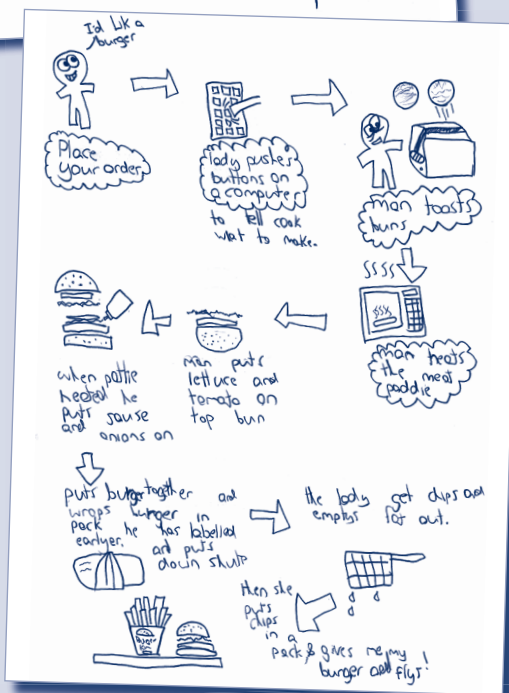 I'd like a
burger
Place
your order
lady pushes
buttons on
a computer
to tell cook
what to make.
man toasts
buns
man heats
the meat
paddie
man puts
lettuce and
tomato on
top bun
when pattie
heated he
puts sause
and onions on
puts burger together and
wraps burger in
pack he has labelled
earlyer. and puts
down shute
the lady get chips and
emptys fat out.
then she
puts
chips
in a
pack & gives me my
burger and frys!